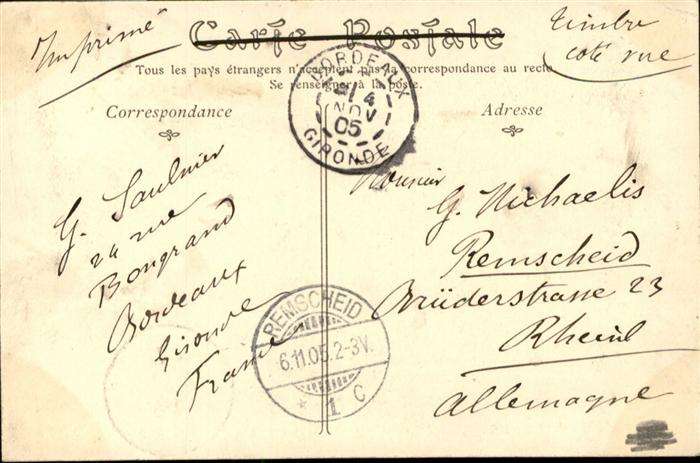 Imprimé
Carte Postale
timbre
coté vue
Tous les pays étrangers n'acceptent pas la correspondance au recto.
Se renseigner à la poste.
BORDEAUX
4
NOV
05
GIRONDE
Correspondance
G. Saulnier
24 rue
Bongrand
Bordeaux
Gironde
France
Adresse
Monsieur
G. Michaelis
Remscheid
Brüderstrasse 23
Rheinl
Allemagne
REMSCHEID
6.11.05.2-3V.
* 1 C